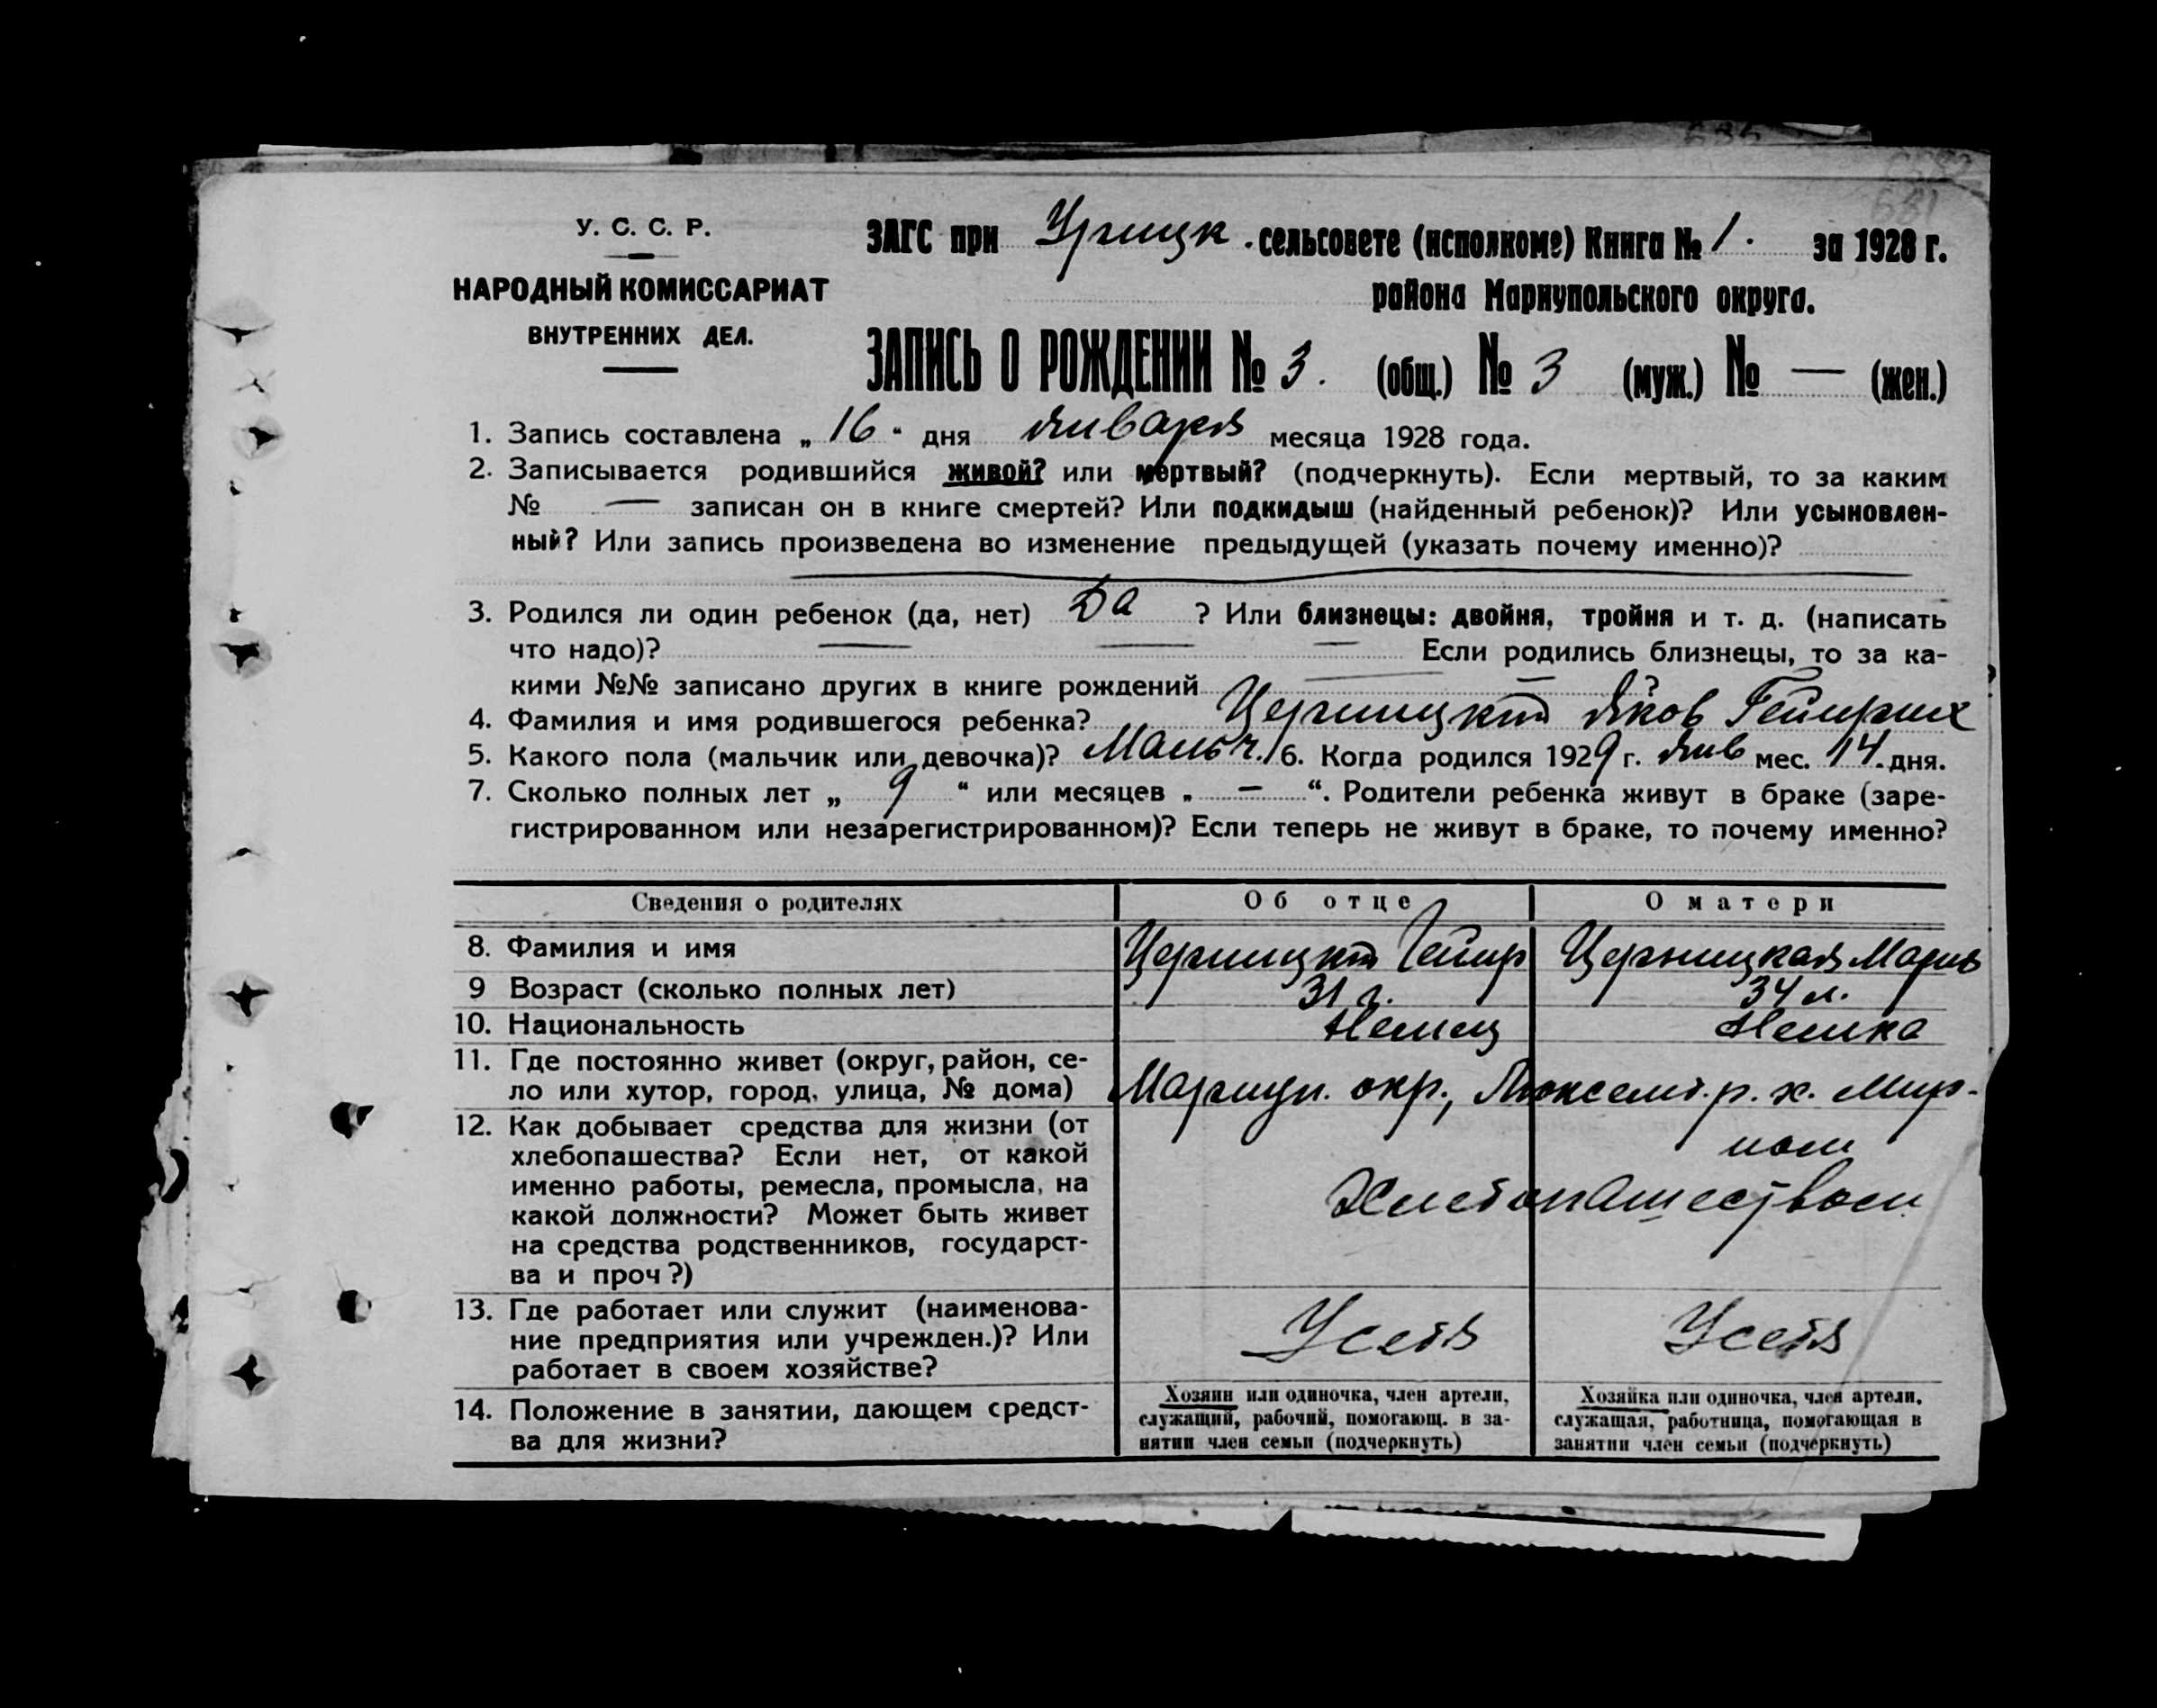 У. С. С. Р.
НАРОДНЫЙ КОМИССАРИАТ
ВНУТРЕННИХ ДЕЛ.
ЗАГС при Урицк. сельсовете (исполкоме) Книга № 1. за 1928 г.
района Мариупольского округа.
ЗАПИСЬ О РОЖДЕНИИ № 3. (общ.) № 3 (муж.) № — (жен.)
1. Запись составлена „ 16 “ дня января месяца 1928 года.
2. Записывается родившийся живой? или мертвый? (подчеркнуть). Если мертвый, то за каким
№ — записан он в книге смертей? Или подкидыш (найденный ребенок)? Или усыновлен-
ный? Или запись произведена во изменение предыдущей (указать почему именно)?
3. Родился ли один ребенок (да, нет) Да ? Или близнецы: двойня, тройня и т. д. (написать
что надо)? — — — Если родились близнецы, то за ка-
кими №№ записано других в книге рождений — — ?
4. Фамилия и имя родившегося ребенка? Церницкий Яков Гейнрих
5. Какого пола (мальчик или девочка)? Мальч. 6. Когда родился 1929 г. янв мес. 14. дня.
7. Сколько полных лет „ 9 “ или месяцев „ — “. Родители ребенка живут в браке (заре-
гистрированном или незарегистрированном)? Если теперь не живут в браке, то почему именно?
Сведения о родителях Об отце О матери
8. Фамилия и имя Церницкий Гейнр Церницкая Мария
9 Возраст (сколько полных лет) 31 г. 34 л.
10. Национальность Немец Немка
11. Где постоянно живет (округ, район, се-
ло или хутор, город, улица, № дома) Мариуп. окр., Люксемб. р. х. Мир-
ном
12. Как добывает средства для жизни (от
хлебопашества? Если нет, от какой
именно работы, ремесла, промысла, на
какой должности? Может быть живет
на средства родственников, государст-
ва и проч?)
Хлебопашеством
13. Где работает или служит (наименова-
ние предприятия или учрежден.)? Или
работает в своем хозяйстве?
У себя У себя
14. Положение в занятии, дающем средст-
ва для жизни?
Хозяин или одиночка, член артели,
служащий, рабочий, помогающ. в за-
нятии член семьи (подчеркнуть)
Хозяйка или одиночка, член артели,
служащая, работница, помогающая в
занятии член семьи (подчеркнуть)